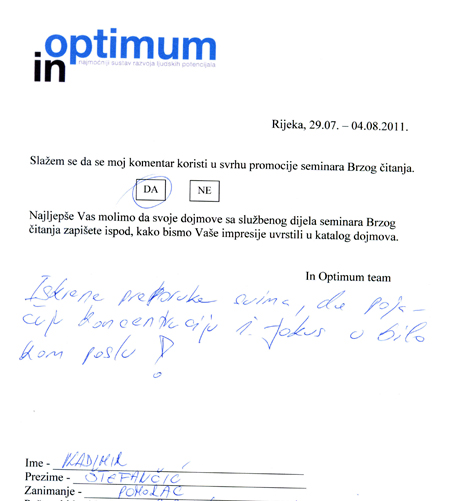 optimum
in
najmoćniji sustav razvoja ljudskih potencijala
Rijeka, 29.07. – 04.08.2011.
Slažem se da se moj komentar koristi u svrhu promocije seminara Brzog čitanja.
DA NE
Najljepše Vas molimo da svoje dojmove sa službenog dijela seminara Brzog
čitanja zapišete ispod, kako bismo Vaše impresije uvrstili u katalog dojmova.
In Optimum team
Iskrene preporuke svima, da poja-
čaju koncentraciju i fokus u bilo
kom poslu!
Ime - VLADIMIR
Prezime - ŠTEFANČIĆ
Zanimanje - POMORAC